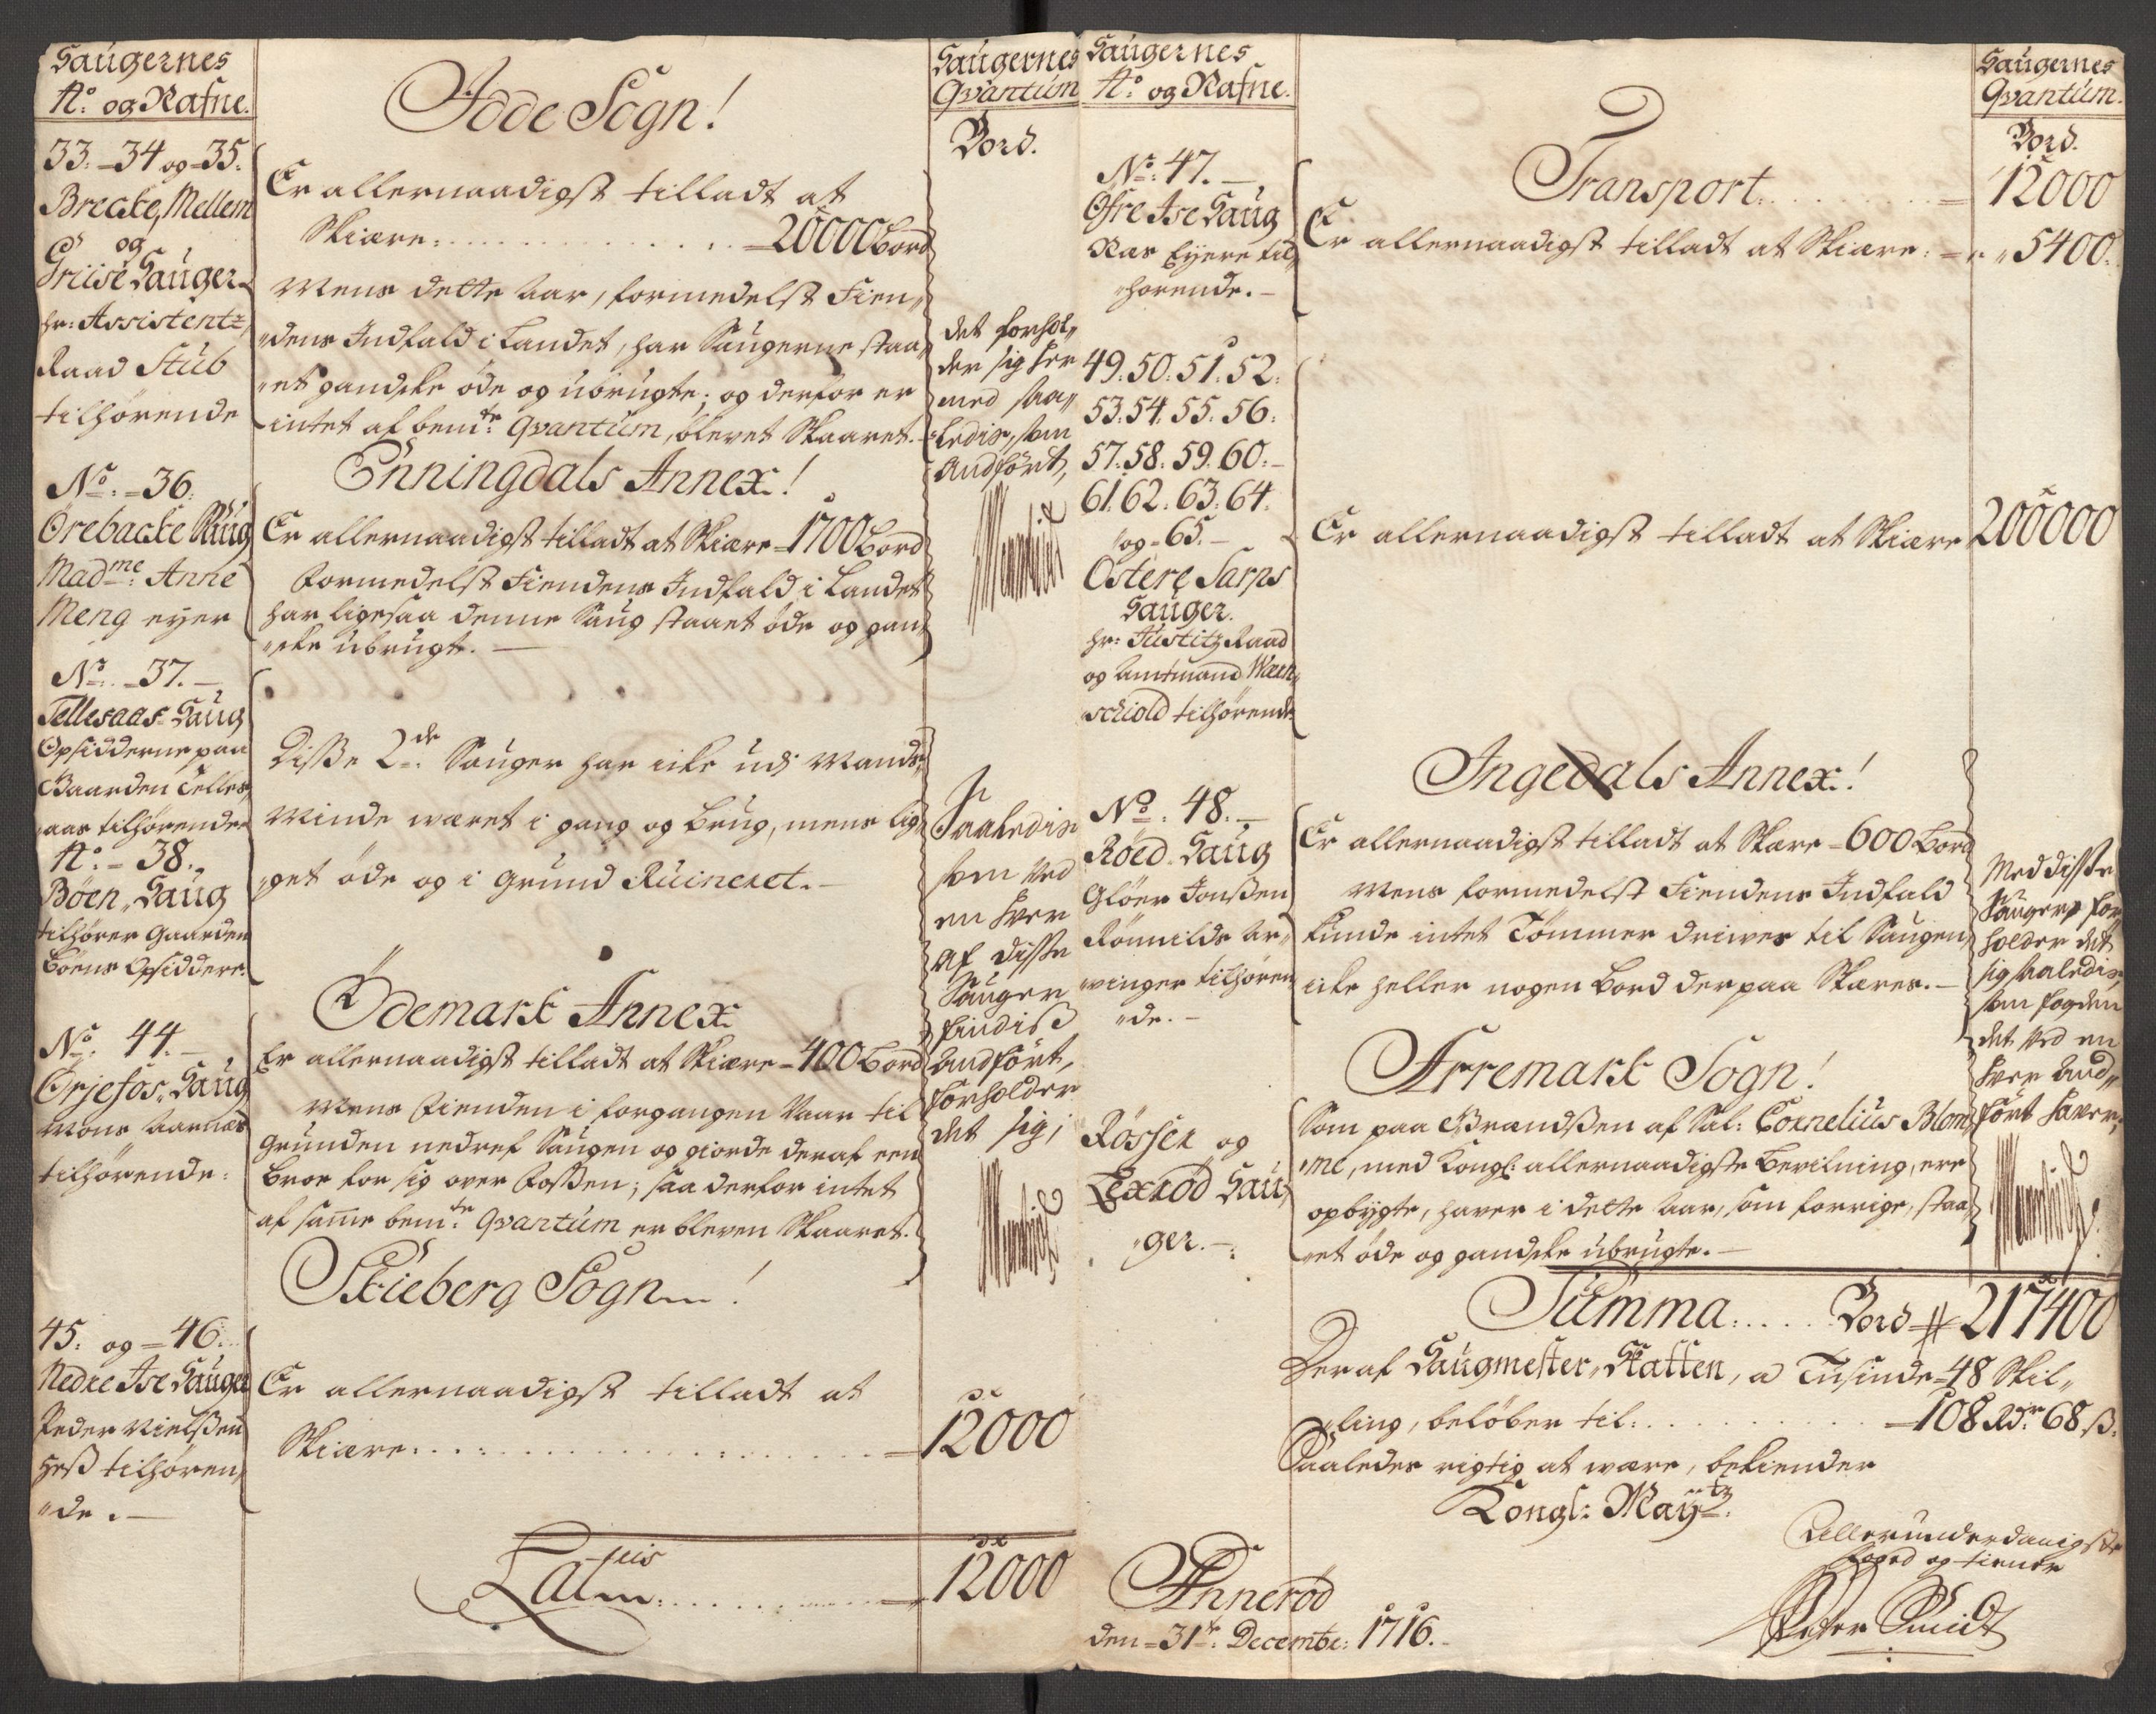 Saugernes
No. og Nafne.
33. - 34 og - 35.
Brecke, Mellem
og
Griise Sauger
hr: Assistentz
Raad Stub
tilhørende
No. - 36.
Örebacke Saug
Madme. Anne
Meng eyer
No. - 37. -
Tellesaas Saug
Opsidderne paa
Gaarden Telles„
„aas tilhørende
No. - 38.
Böen„ Saug
tilhører Gaarden
Böens Opsiddere.
No. 44. -
Örjefos„ Saug
Mons Aarnæs
tilhørende.
45. og - 46.
Nedre Ise Sauger
Peder Nielssen
Hess tilhøren„
„de. -
Idde Sogn!
Er allernaadigst tilladt at
Skiære. . . . . - 20000 bord
Mens dette Aar, formedelst Fien„
„dens Indfald i Landet, har Saugerne staa„
„et gandske øde og ubrugte; og derfor er
intet af bemte. Qvantum, blevet Skaaret.
Enningdals Annex!
Er allernaadigst tilladt at Skiære - 1700 bord
Formedelst Fiendens Indfald i Landet
har ligesaa denne Saug staaet øde og gan„
„ske ubrugt. -
Disse 2de. Sauger har icke udj Mands„
Minde wæret i gang og brug, mens lig„
„get øde og i Grund Ruineret. -
Ödemark Annex
Er allernaadigst tilladt at Skiære - 400 bord
Mens Fienden i forgangen Vaar til
Grunden nedref Saugen og giorde deraf een
broe for sig over Fossen; saa derfor intet
af samme bemte. Qvantum er bleven Skaaret.
Skieberg Sogn!
Er allernaadigst tilladt at
Skiære. . . . . = 12000
Latuis . . . . . 12000
Saugernes
Qvantum
Bord.
det forhol„
der sig her
med saa„
„ledis, som
Andført,
Saaledis
som Ved
en hver
af disse
Sauger
findiss
Andført,
forholder
det sig,
Saugernes
No. og Nafne.
No. 47. -
Öfre Ise Saug
Nær Eyere til„
„hørende. -
49. 50. 51. 52.
53. 54. 55. 56.
57. 58. 59. 60. -
61. 62. 63. 64.
og - 65. -
Östere Sarps
Sauger.
hr: Justitz Raad
og Amtmand Wærn„
schiold tilhørende
No. 48. -
Röed Saug
Glöer Jonssen
Rönnilds Ar„
„winger tilhøren„
„de. -
Rösser og
Lexröd Sau„
„ger. -
Transport. . . . . = 12000
Er allernaadigst tilladt at Skiære. = „ „ 5400.
Er allernaadigst tilladt at Skiære 200000
Ingedals Annex!
Er allernaadigst tilladt at Skære - 600 bord
Mens formedelst Fiendens Indfald
kunde intet Tömmer driwes til Saugen,
icke heller nogen bord derpaa Skæres. -
Arremark Sogn!
Som paa Grændssen af Sal: Cornelius Blom„
„me, med Kongl: allernaadigste bevilning, ere
opbygte, haver i dette Aar, som forrige, staa„
„et øde og gandske ubrugte. -
Summa. . . . . Bord # 217400
Deraf Saugmester„Skatten, a Tusinde - 48 Skil„
„ling, beløber til. . . . . - 108 Rdr 68 ß.
Saaledes rigtig at være, bekiender
Kongl: Maytz.
Allerunderdanigste
foged og tiener
Peter Smidt
Annerød
den - 31te. Decembr: 1716.
Saugernes
Qvantum.
Bord.
Med disse
Sauger for„
holder det
sig saaledis,
som foged
det ved en
hver And„
ført haver,